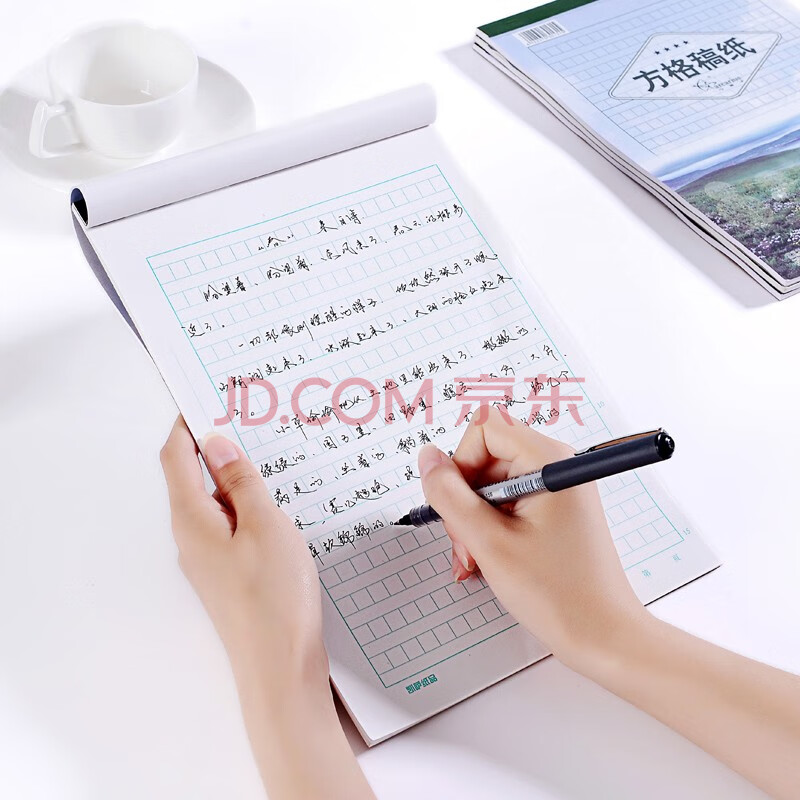 方格稿纸
《春》 朱自清
盼望着,盼望着,东风来了,春天的脚步
近了。
一切都像刚睡醒的样子,欣欣然张开了眼。
山朗润起来了,水涨起来了,太阳的脸红起来
了。
小草偷偷地从土地里钻出来了,嫩嫩的,
绿绿的。园子里,田野里,瞧去,一大片一大片
满是的。坐着,躺着,
软绵绵的。
JD.COM 京东
15
第 页
凯萨纸品